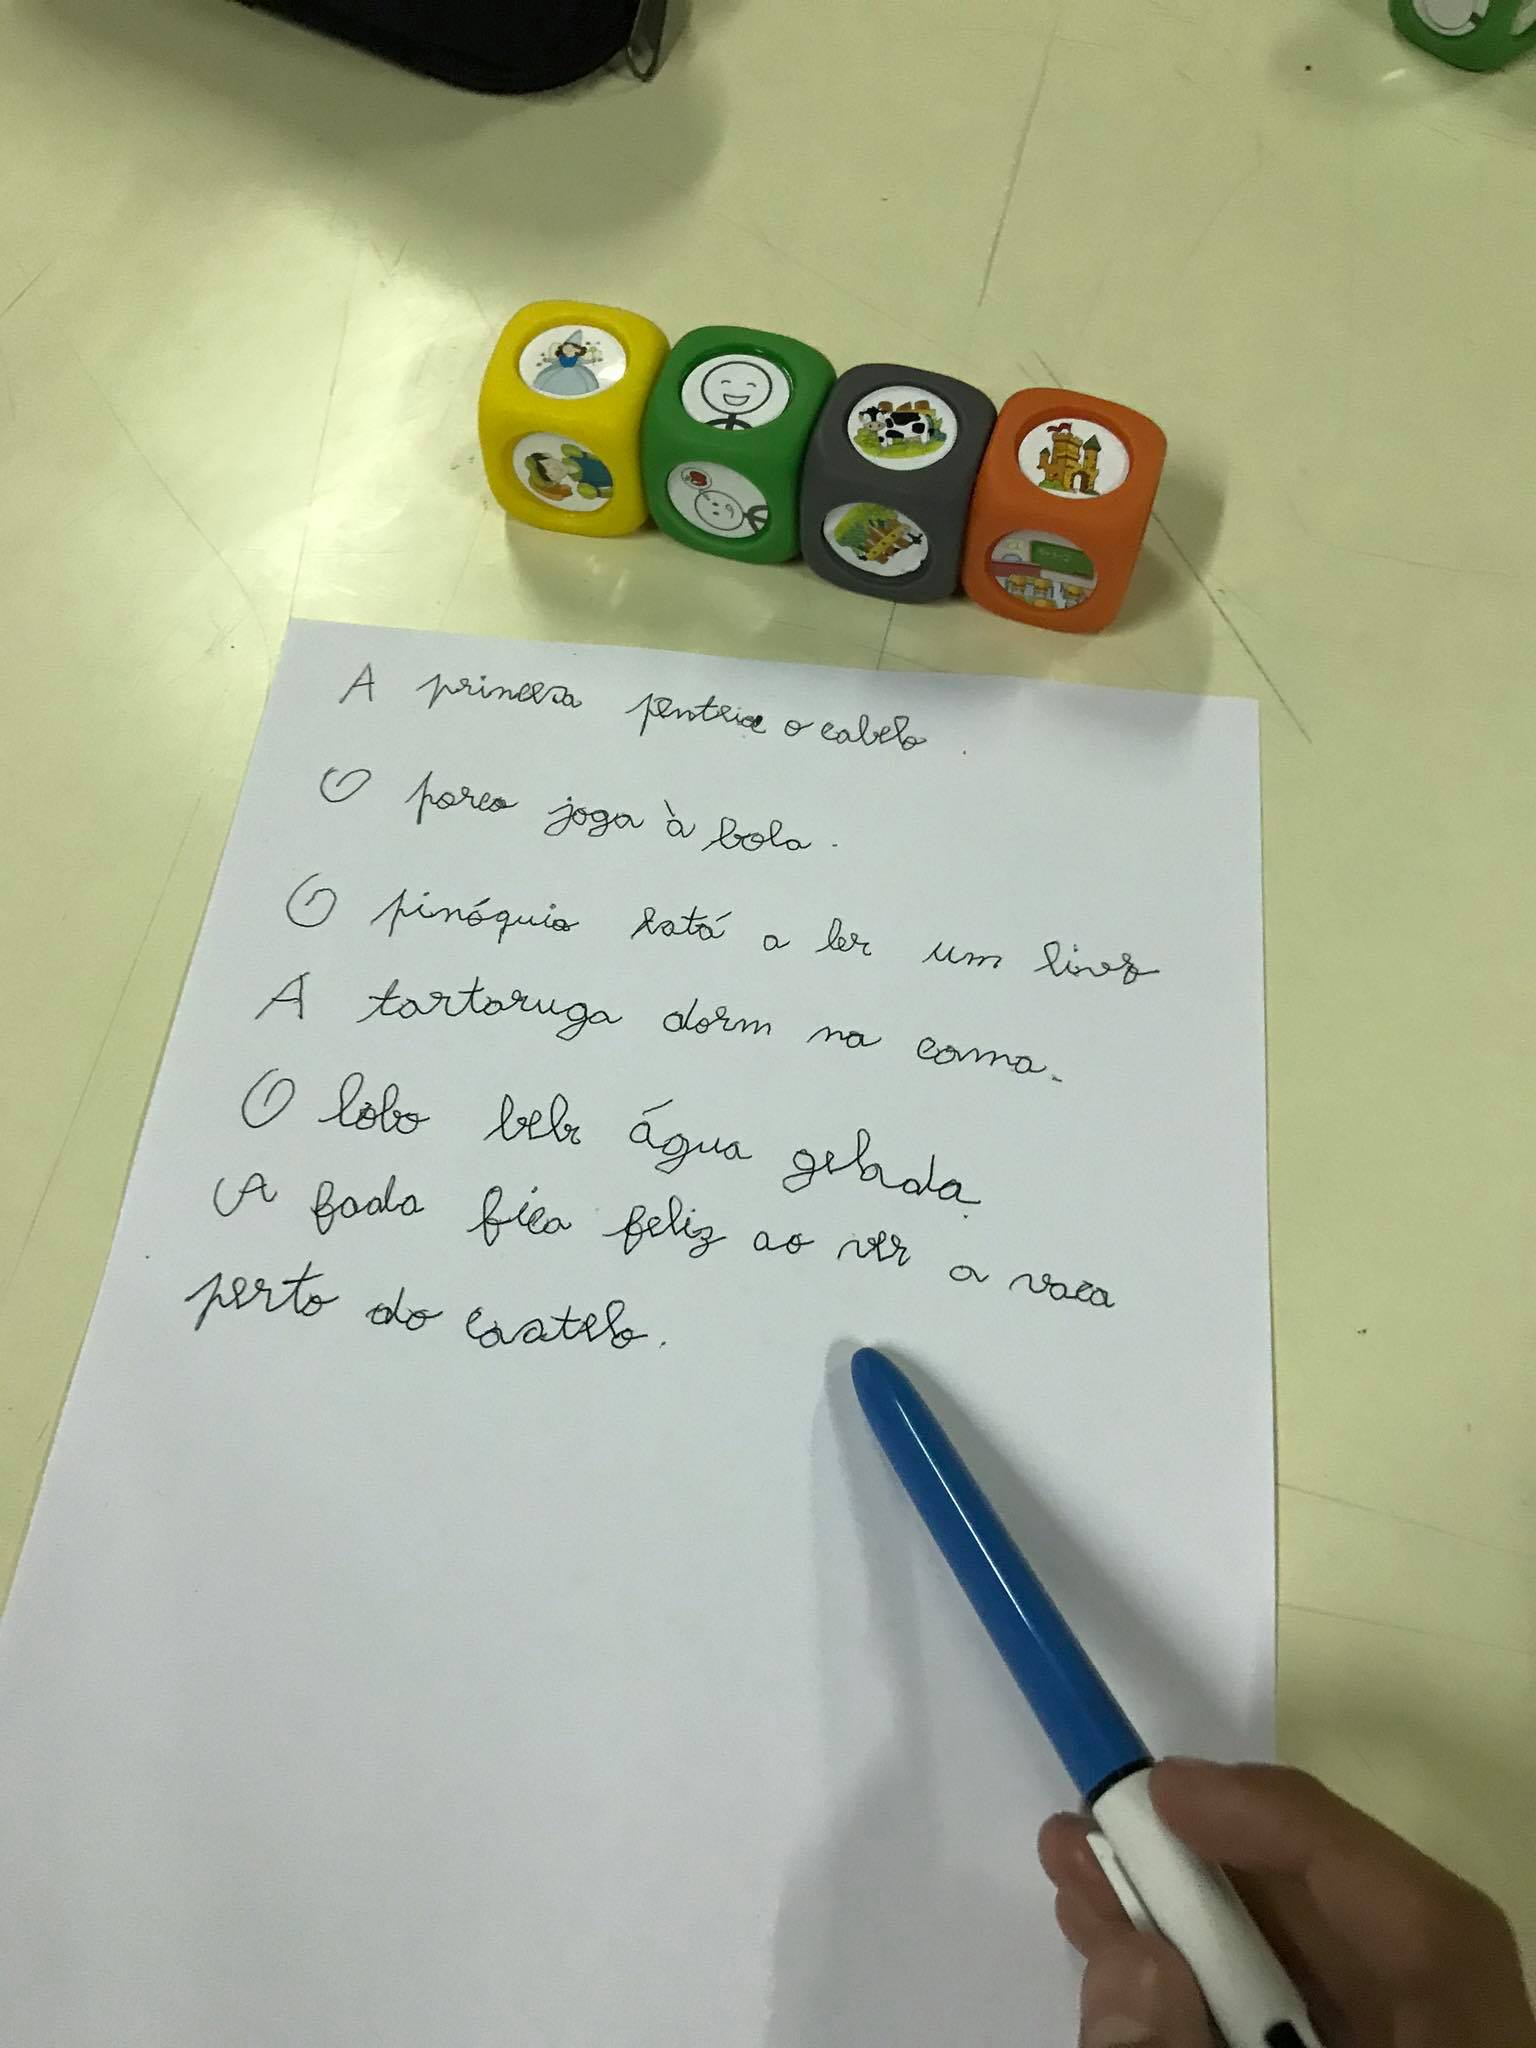 A princesa penteia o cabelo.
O porco joga à bola.
O pinóquio está a ler um livro
A tartaruga dorm na cama.
O lobo bebe água gelada.
A fada fica feliz ao ver a vaca
perto do castelo.